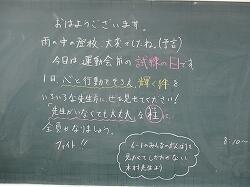 おはようございます。
雨の中の登校、大変でしたね。(予言)
今日は運動会前の試練の日です
1日、心と行動をそろえ、輝く伴を
いろいろな先生方に、せて見せてください!
「先生がいなくても大丈夫」な
全員でなりましょう。
ファイト!!
木村先生より
8:10〜